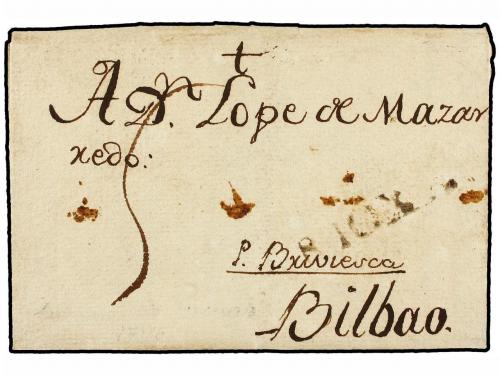 A Dn. Lope de Mazar
redo:
P. Briviesca
Bilbao.